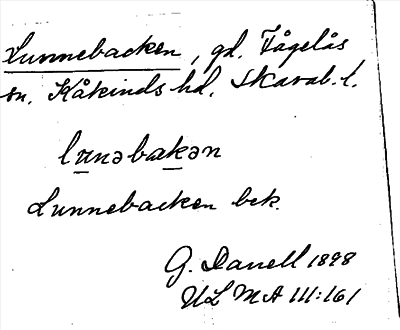 Lunnebacken, gd, Fågelås
sn. Kåkinds hd, Skarab. l.
lunəbakən
Lunnebacken bek.
G. Danell 1898
ULMA 111:161